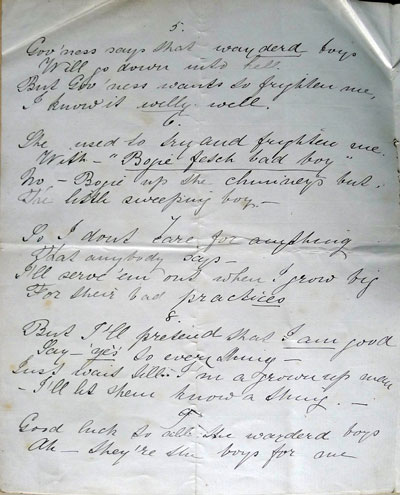 5.
Gov'ness says that wayderd boys
Will go down into hell
But Gov'ness wants to frighten me,
I know it welly well.
6.
She used to try and frighten me
With - "Bogie fetch bad boy"
No - Bogie up the chimneys but
The little sweeping boy. -
7.
So I don't care for anything
That anybody says -
I'll serve 'em out when I grow big
For their bad practices
8.
But I'll pretend that I am good
Say - 'yes' to every thing -
Just wait till I'm a grown up man
- I'll let them know a thing. -
Good luck to all the wayderd boys
Ah - they're the boys for me